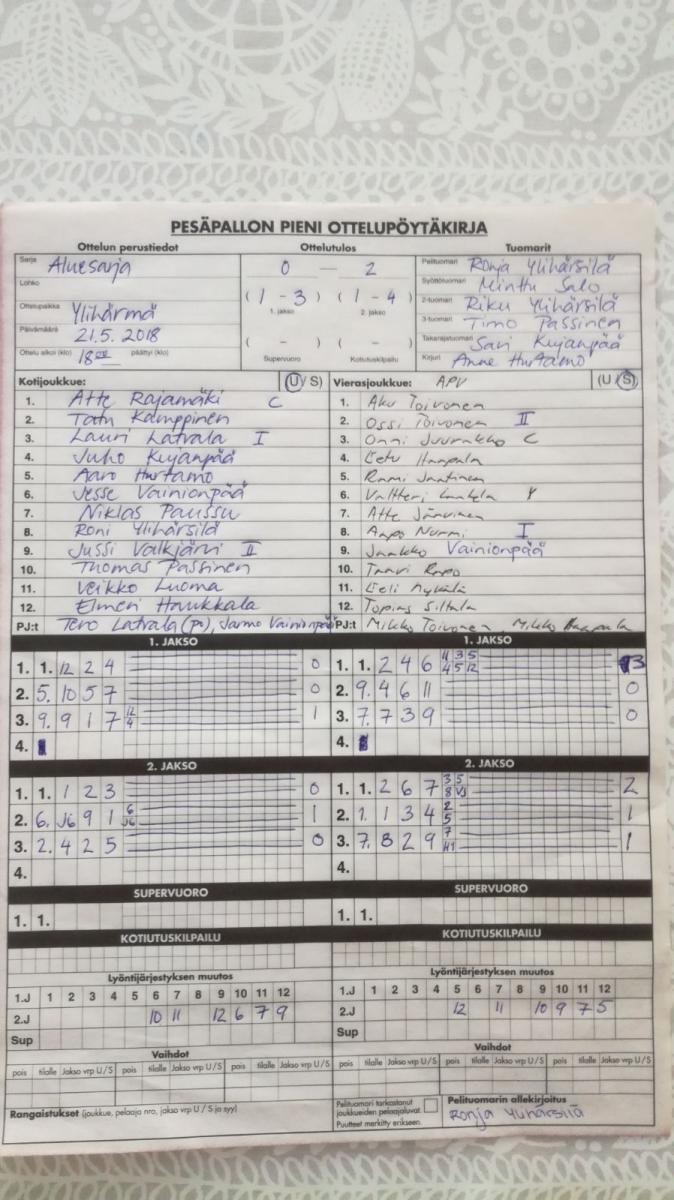 PESÄPALLON PIENI OTTELUPÖYTÄKIRJA
Ottelun perustiedot Ottelutulos Tuomarit
Sarja Aluesarja 0 — 2 Pelituomari Ronja Ylihärsilä
Lohko Syöttötuomari Minttu Salo
Ottelupaikka Ylihärmä (1 - 3) (1 - 4) 2-tuomari Riku Ylihärsilä
1. jakso 2. jakso 3-tuomari Timo Passinen
Päivämäärä 21.5. 2018 ( - ) ( - ) Takarajatuomari Sari Kujanpää
Ottelu alkoi (klo) 18 00 päättyi (klo) Supervuoro Kotiutuskilpailu Kirjuri Anne Hurtamo
Kotijoukkue: (U/S) Vierasjoukkue: APV (U/S)
1. Atte Rajamäki C 1. Aku Toivonen
2. Tatu Kamppinen 2. Ossi Toivonen II
3. Lauri Latvala I 3. Onni Juurakko C
4. Juho Kujanpää 4. Eetu Haapala
5. Aaro Hurtamo 5. Rami Jaatinen
6. Jesse Vainionpää 6. Valtteri
7. Niklas Paussu 7. Atte Järvinen
8. Roni Ylihärsilä 8. Aapo Nurmi I
9. Jussi Valkjärvi II 9. Jaakko Vainionpää
10. Thomas Passinen 10. Taavi
11. Veikko Luoma 11. Eeli Mykälä
12. Elmeri Haukkala 12. Topias Siltala
PJ:t Tero Latvala (PJ), Jarmo Vainionpää PJ:t Mikko Toivonen Mikko Haapala
1. JAKSO 1. JAKSO
1. 1. 12 2 4 0 1. 1. 2 4 6 11 3 5 4 5 12 3
2. 5. 10 5 7 0 2. 9. 4 6 11 0
3. 9. 9 1 7 12 4 1 3. 7. 7 3 9 0
4. 4.
2. JAKSO 2. JAKSO
1. 1. 1 2 3 0 1. 1. 2 6 7 3 5 8 VJ 2
2. 6. J6 9 1 6 J6 1 2. 1. 1 3 4 2 5 1
3. 2. 4 2 5 0 3. 7. 8 2 9 7 H1 1
4. 4.
SUPERVUORO SUPERVUORO
1. 1. 1. 1.
KOTIUTUSKILPAILU KOTIUTUSKILPAILU
Lyöntijärjestyksen muutos Lyöntijärjestyksen muutos
1.J 1 2 3 4 5 6 7 8 9 10 11 12 1.J 1 2 3 4 5 6 7 8 9 10 11 12
2.J 10 11 12 6 7 9 2.J 12 11 10 9 7 5
Sup Sup
Vaihdot Vaihdot
pois tilalle Jakso vrp U/S pois tilalle Jakso vrp U/S pois tilalle Jakso vrp U/S pois tilalle Jakso vrp U/S pois tilalle Jakso vrp U/S pois tilalle Jakso vrp U/S
Rangaistukset (joukkue, pelaaja nro, jakso vrp U / S ja syy) Pelituomari tarkastanut joukkueiden pelaajaluvat. Pelituomarin allekirjoitus
Puutteet merkitty erikseen. Ronja Ylihärsilä